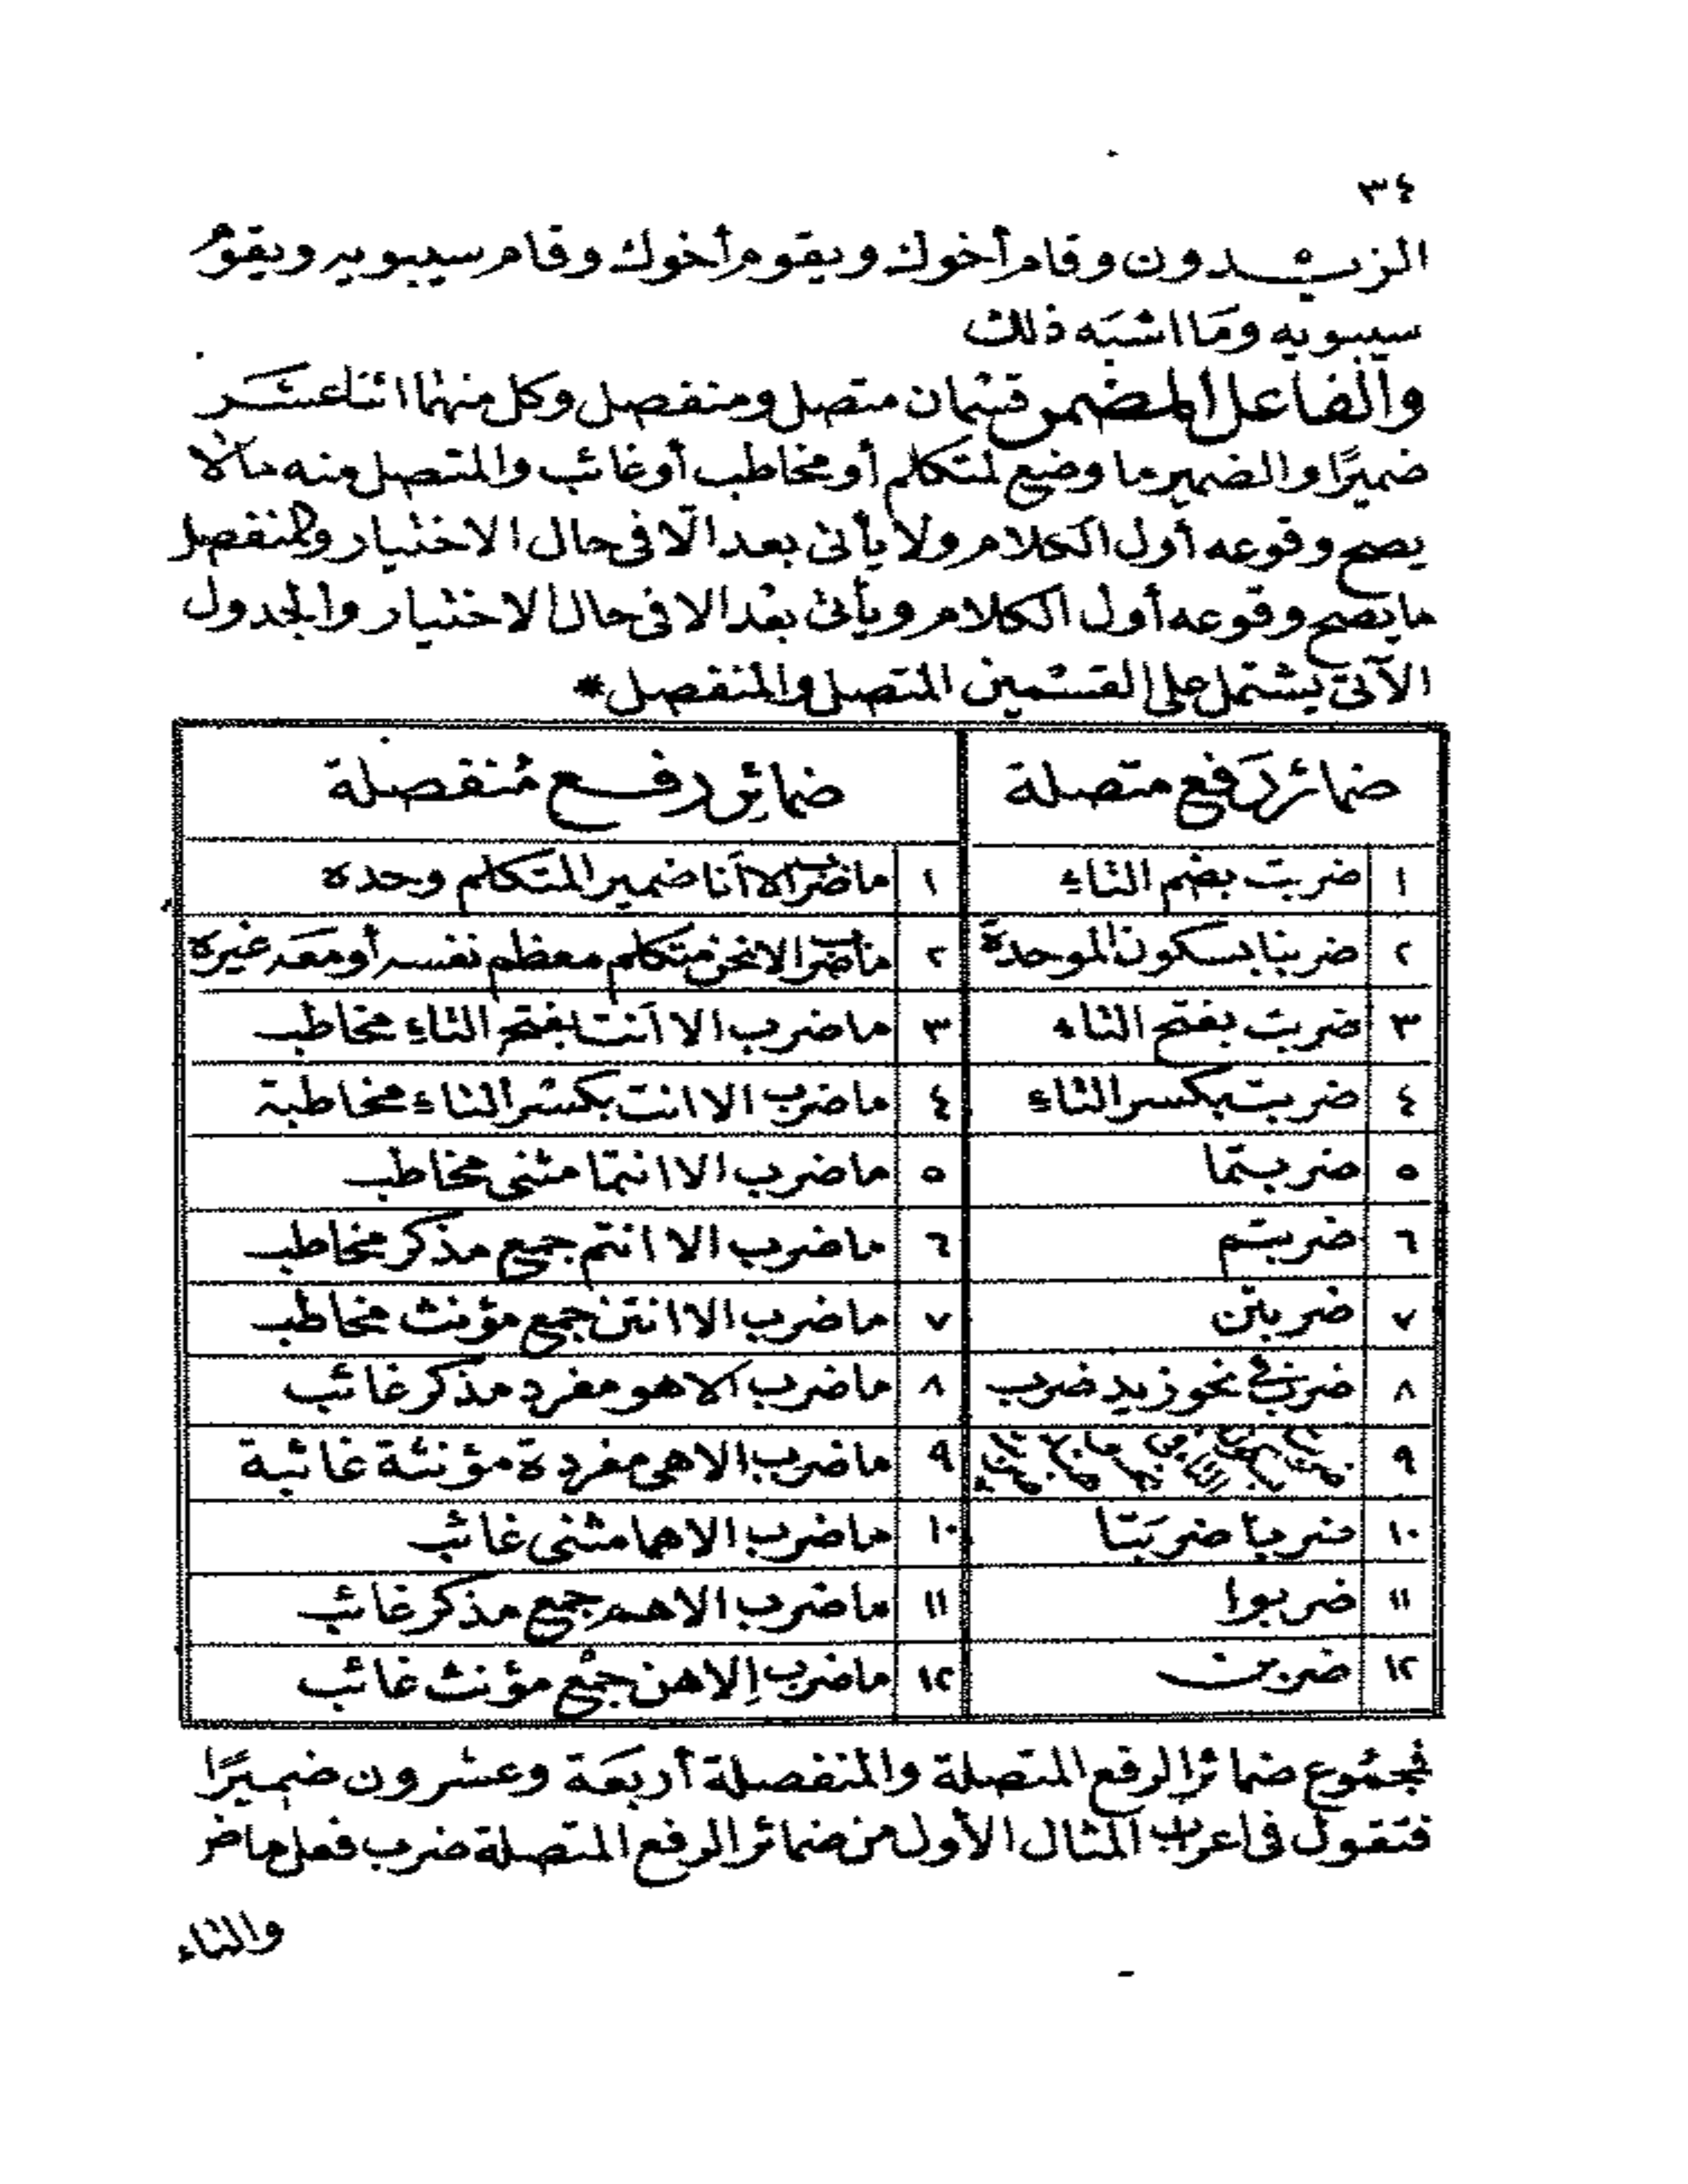 ٣٤
الزيدون وقام أخوك ويقوم أخوك وقام سيبويه ويقوم
سيبويه وما اشبه ذلك
والفاعل المضمر قسمان متصل ومنفصل وكل منهما اثنا عشر
ضميرًا والضمير ما وضع لمتكلم أو مخاطب أو غائب والمتصل منه ما لا
يصح وقوعه أول الكلام ولا يأتى بعد الّا فى حال الاختيار والمنفصل
ما يصح وقوعه أول الكلام ويأتى بعد الا فى حال الاختيار والجدول
الآتى يشتمل على القسمين المتصل والمنفصل *
ضمائر رفع متصلة
ضمائر رفع منفصلة
١ ضربت بضم التاء
١ ما ضرب الا أنا ضمير المتكلم وحده
٢ ضربنا بسكون الموحدة
٢ ما ضرب الا نحن متكلم معظم نفسه أو معه غيره
٣ ضربت بفتح التاء
٣ ما ضرب الا أنت بفتح التاء مخاطب
٤ ضربت بكسر التاء
٤ ما ضرب الا انت بكسر التاء مخاطبة
٥ ضربتما
٥ ما ضرب الا انتما مثنى مخاطب
٦ ضربتم
٦ ما ضرب الا انتم جمع مذكر مخاطب
٧ ضربتن
٧ ما ضرب الا انتن جمع مؤنث مخاطب
٨ ضرب فى نحو زيد ضرب
٨ ما ضرب الا هو مفرد مذكر غائب
٩
٩ ما ضرب الا هى مفردة مؤنثة غائبة
١٠ ضربا ضربَتا
١٠ ما ضرب الا هما مثنى غائب
١١ ضربوا
١١ ما ضرب الا هم جمع مذكر غائب
١٢ ضربن
١٢ ما ضرب إلا هن جمع مؤنث غائب
فجموع ضمائر الرفع المتصلة والمنفصلة أربعة وعشرون ضميرًا
فتقول فى اعراب المثال الأول من ضمائر الرفع المتصلة ضرب فعل ماض
والتاء